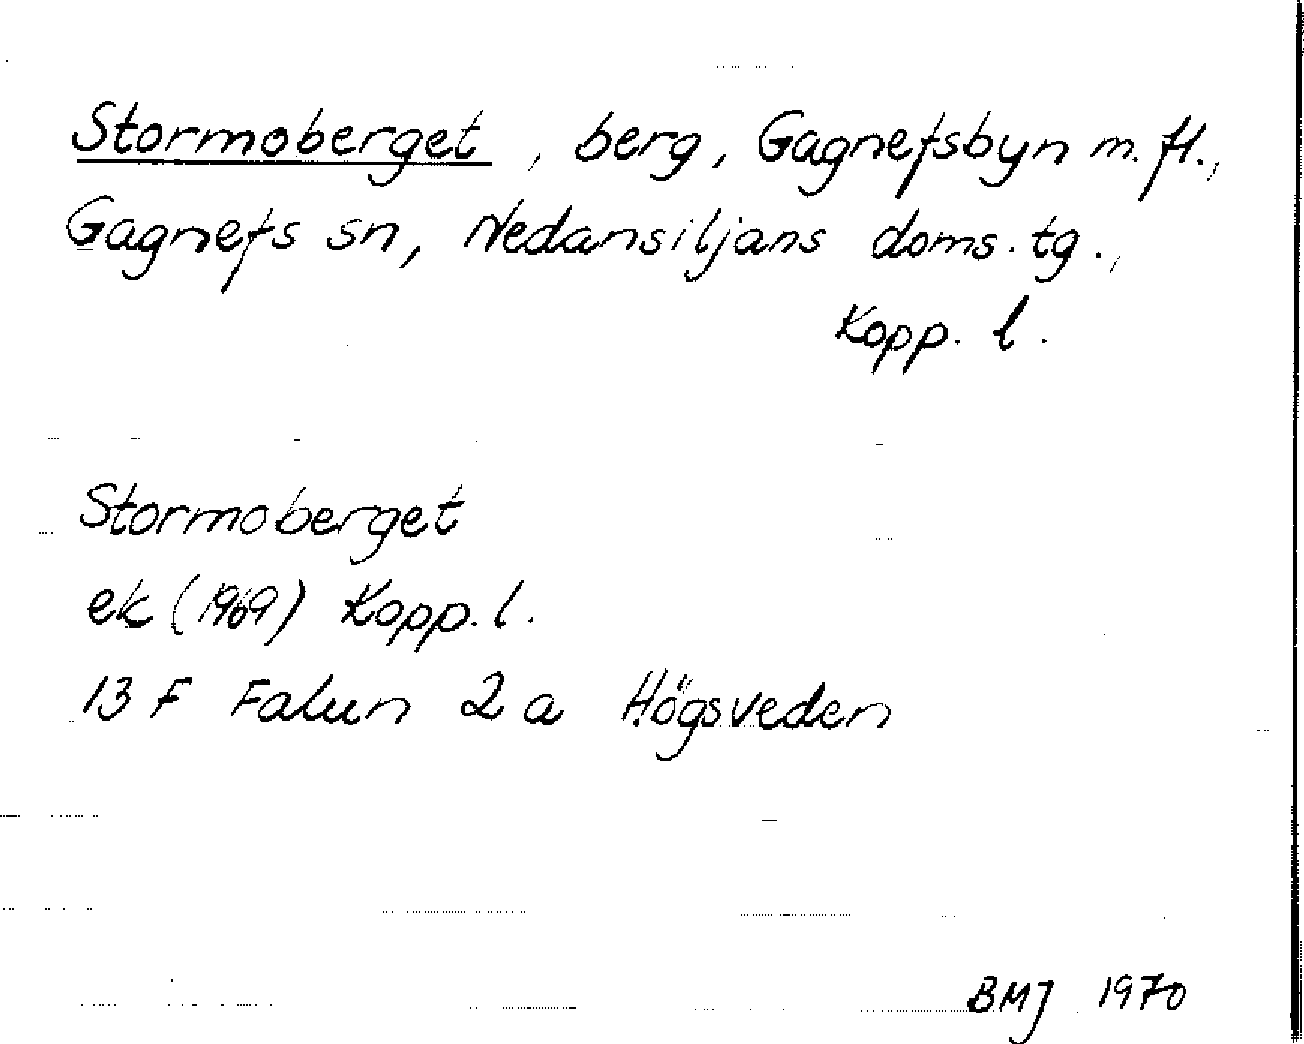 Stormoberget, berg, Gagnefsbyn m. fl.,
Gagnefs sn, Nedansiljans doms. tg.,
Kopp. l.
Stormoberget
ek (1969) Kopp. l.
13 F Falun 2 a Högsveden
BMJ 1970